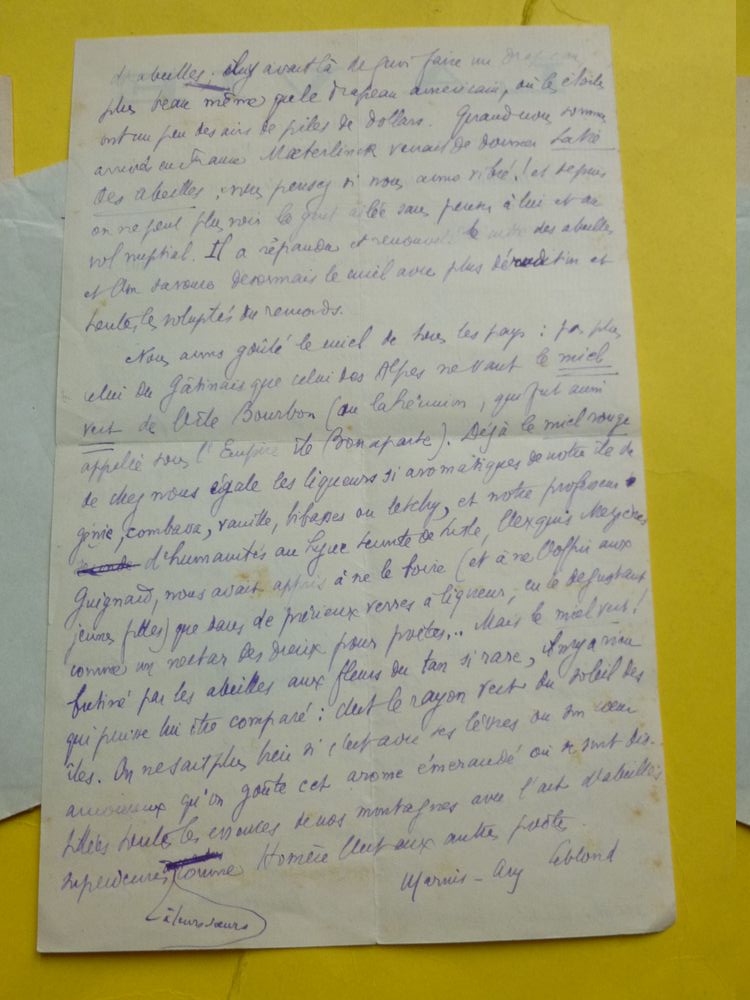 d'abeilles, il y avait là de quoi faire un drapeau
plus beau même que le drapeau américain, où les étoiles
ont un peu des airs de piles de dollars. Quand nous sommes
arrivés en France Mæterlinck venait de donner La Vie
des abeilles ; vous pensez si nous avons vibré ! et depuis
on ne peut plus voir la gent ailée sans penser à lui et au
vol nuptial. Il a répandu et renouvelé le des abeilles
et l'on savoure désormais le miel avec plus d'érudition et
toutes les voluptés du remords.
Nous avons goûté le miel de tous les pays : pas plus
celui du Gâtinais que celui des Alpes ne vaut le miel
vert de l'île Bourbon (ou la Réunion, qui fut aussi
appelée sous l'Empire île Bonaparte). Déjà le miel rouge
de chez nous égale les liqueurs si aromatiques de notre île de
génie, combava, vanille, bibasses ou letchy, et notre professeur
d'humanités au Lycée Leconte de Lisle, l'exquis
Guignard, nous avait appris à ne le boire (et à ne l'offrir aux
jeunes filles) que dans de précieux verres à liqueur, en le dégustant
comme un nectar des dieux pour poètes... Mais le miel vert !
butiné par les abeilles aux fleurs du tan si rare, il n'y a rien
qui puisse lui être comparé : c'est le rayon vert du soleil des
îles. On ne sait plus bien si c'est avec ses lèvres ou son cœur
amoureux qu'on goûte cet arome émeraudé où se sont dis-
tillées toutes les essences de nos montagnes avec l'art d'abeilles
supérieures à leurs sœurs comme Homère l'est aux autres poètes.
Marius-Ary Leblond